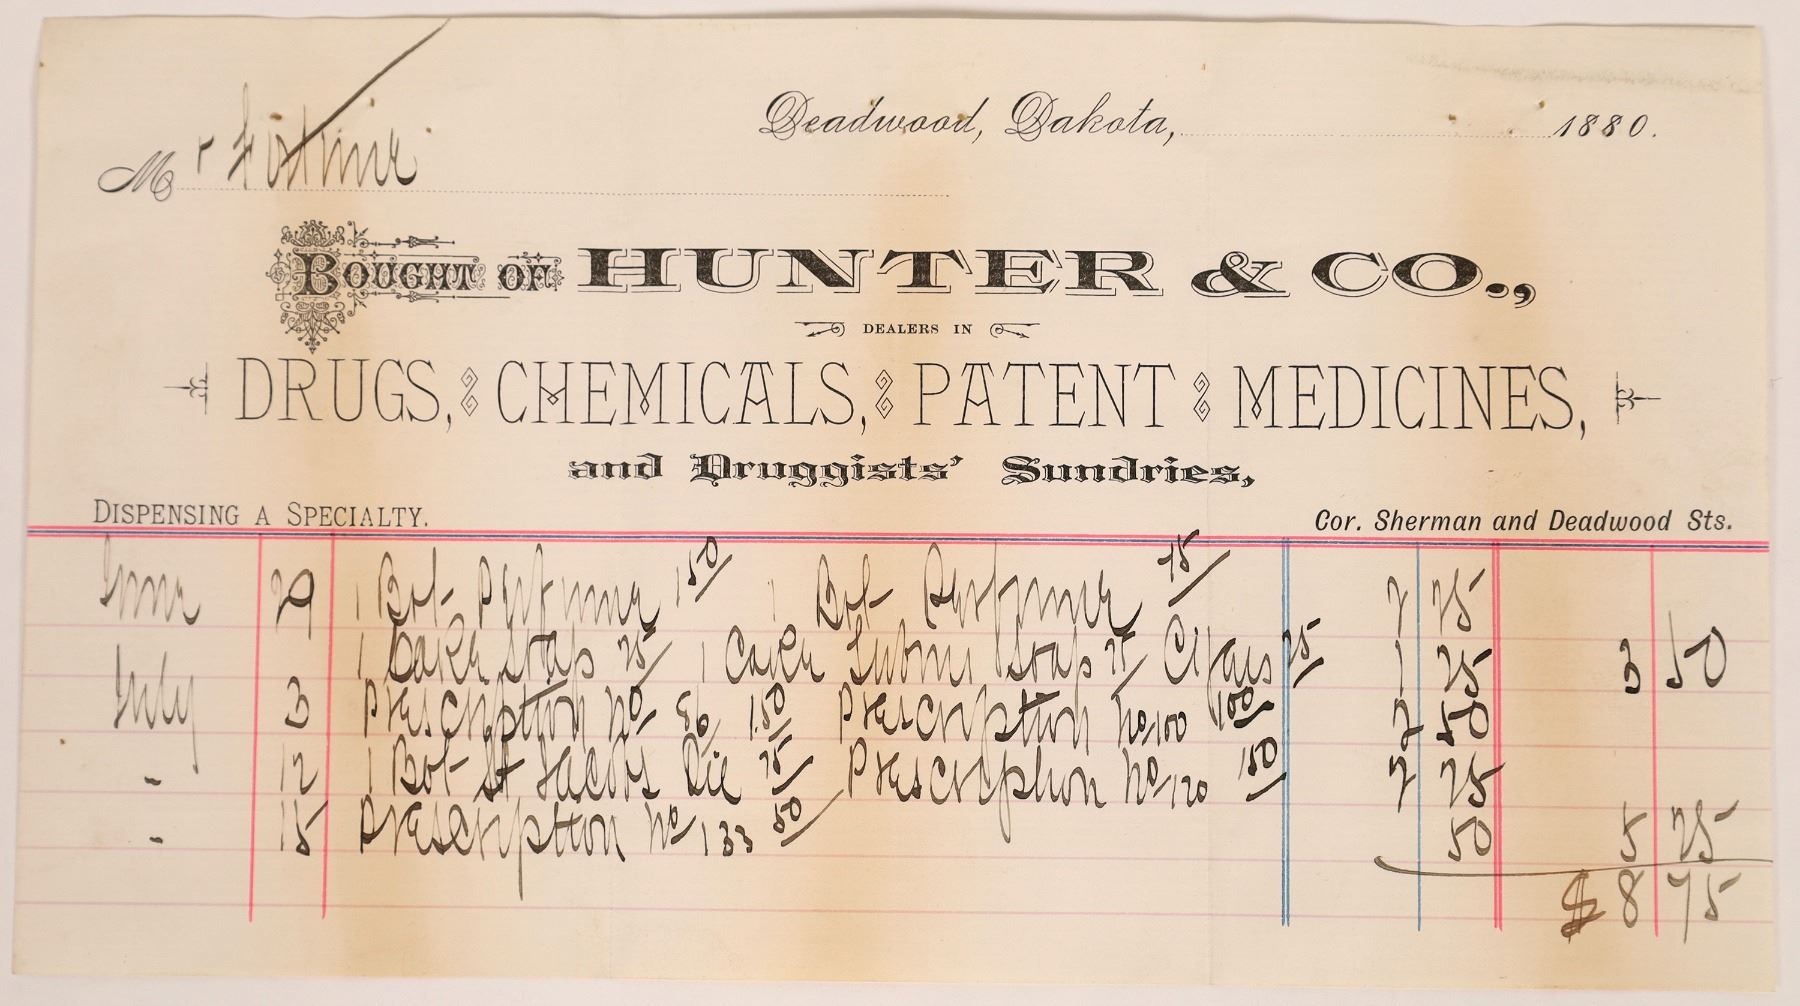 Deadwood, Dakota, 1880.
Mr
BOUGHT OF HUNTER & CO.,
DEALERS IN
DRUGS, CHEMICALS, PATENT MEDICINES,
and Druggists' Sundries,
DISPENSING A SPECIALTY. Cor. Sherman and Deadwood Sts.
June 29 1 Bot Perfume 1 50 1 Bot Perfume 75 2 25
1 Cake Soap 25 1 Cake Soap 75 Cigars 25 1 25 3 50
July 3 Prescription No 86 1.50 Prescription No 100 100 2 50
" 12 1 Bot St Jacobs Oil 75 Prescription No 120 150 2 75
" 15 Prescription No 133 50 50 5 75
$ 8 75